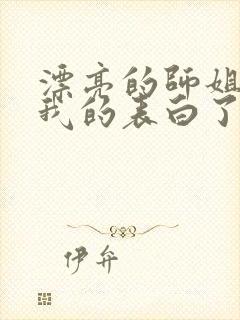 漂亮的师姐
我的表白了
伊弁